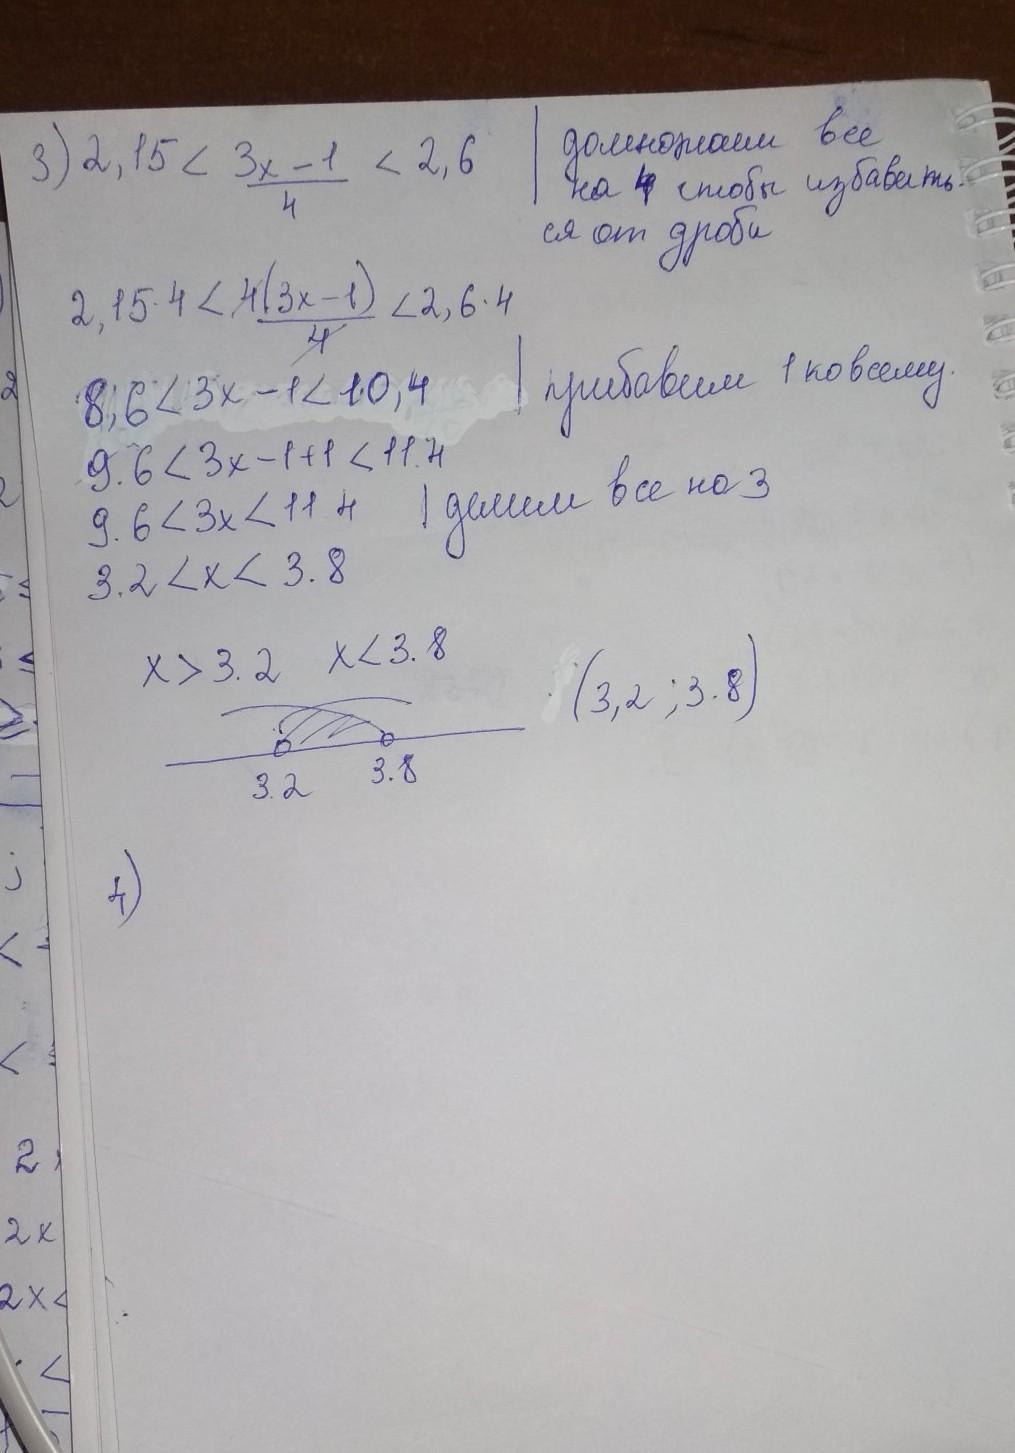 3) 2,15 < 3x-1 / 4 < 2,6 | домножаем все
на 4 чтобы избавить-
ся от дроби
2,15·4 < 4(3x-1) / 4 < 2,6·4
8,6 < 3x-1 < 10,4 | прибавим 1 ко всему.
9.6 < 3x-1+1 < 11.4
9.6 < 3x < 11 4 | делим все на 3
3.2 < x < 3.8
x > 3.2 x < 3.8
(3,2 ; 3.8)
3.2 3.8
4)
2
2x
2x <
<